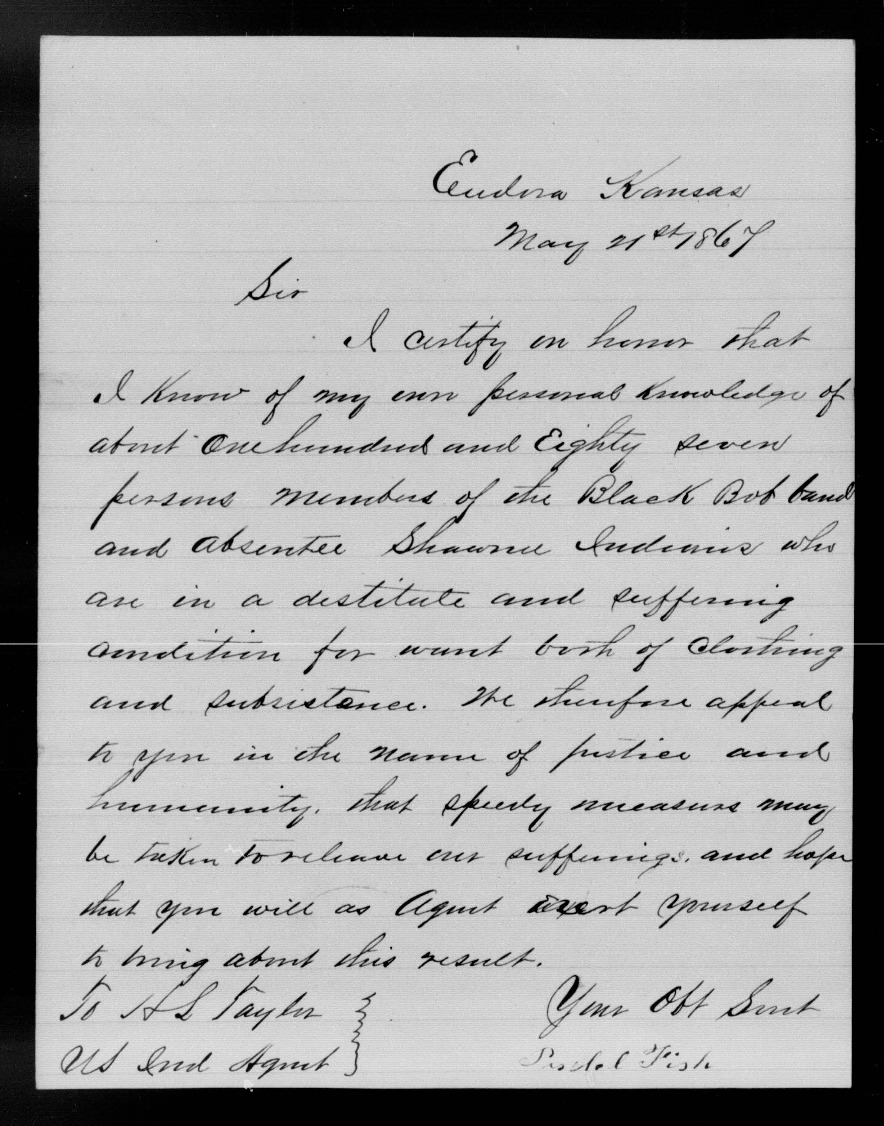 Eudora Kansas
May 21st 1867
Sir
I certify on honor that
I Know of my own personal Knowledge of
about One hundred and Eighty seven
persons members of the Black Bob band
and absentee Shawnee Indians who
are in a destitute and suffering
condition for want both of Clothing
and subsistence. We therefore appeal
to you in the name of justice and
humanity. that speedy measures may
be taken to releave our sufferings. and hope
that you will as Agent exert yourself
to bring about this result.
To H L Taylor
US Ind Agent
Your Obt Servt
Fish